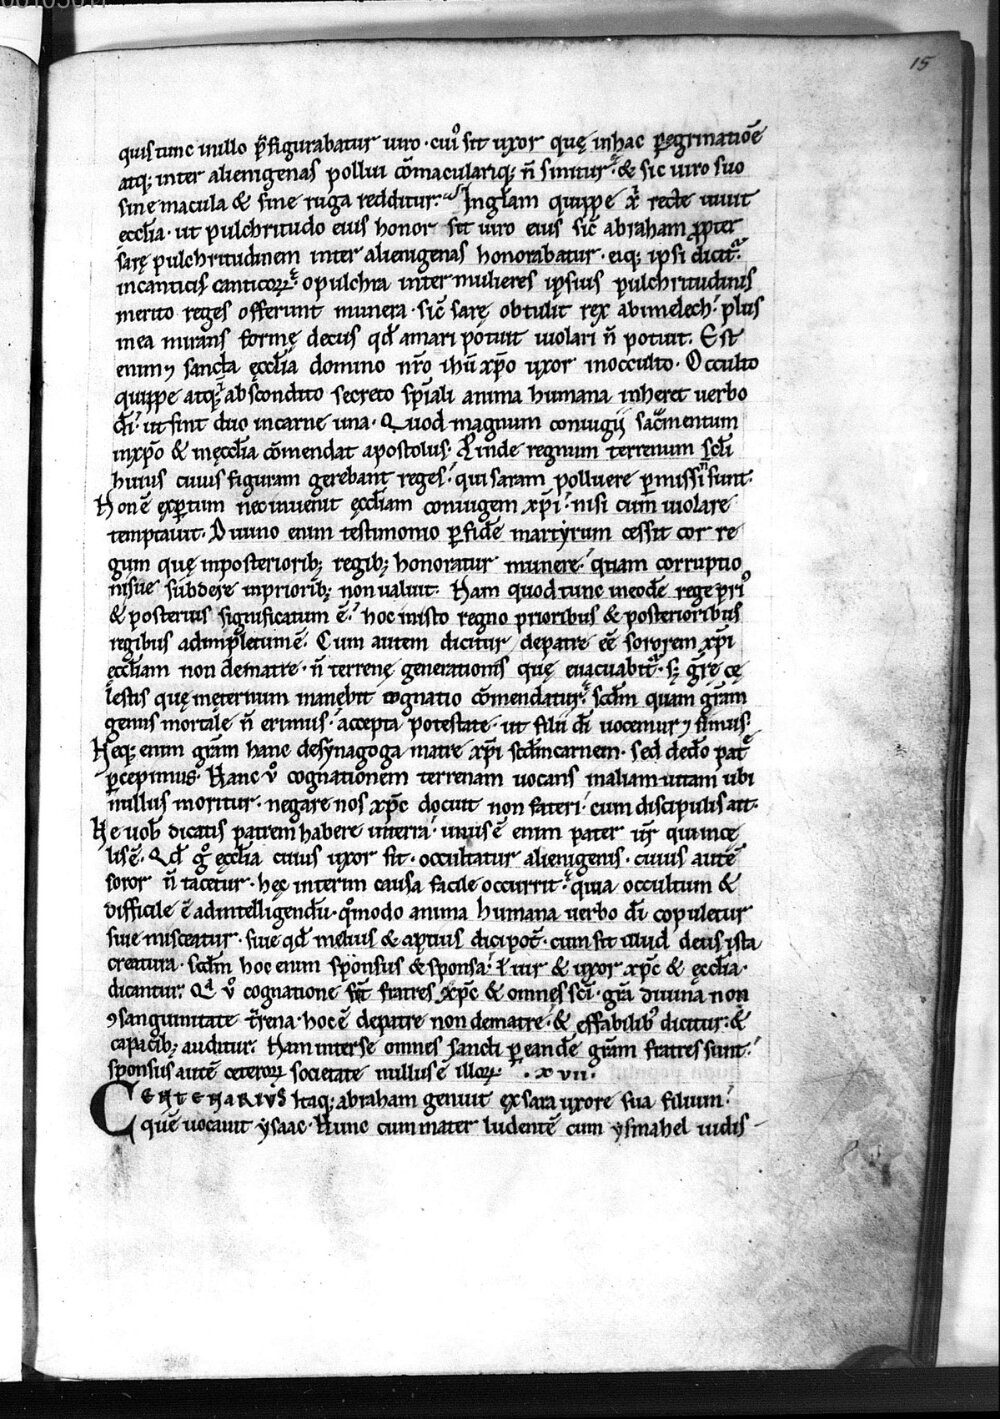 15
quis tunc in illo p̄figurabatur uiro· cui᷒ sit uxor quę in hac peregrinatiōe
atq; inter alienigenas pollui cōmaculariq; n̄ sinitur· & sic uiro suo
sine macula & sine ruga redditur· In gl̄am quippe x̄ recte uiuit
ęccl̄ia· ut pulchritudo eius honor sit uiro eius sic̄ abraham ꝓpter
sarę pulchritudinem inter alienigenas honorabatur· eiq; ipsi dicit᷑
in canticis canticoꝝ· o pulchra inter mulieres ipsius pulchritudinis
merito reges offerunt munera· sic̄ sarę obtulit rex abimelech· plus
mea mirans formę decus qd̄ amari potuit uiolari n̄ potuit. Est
enim ⁊ sancta ęccl̄ia domino nr̄o ihū xp̄o uxor in occulto· Occulto
quippe atq; abscondito secreto sp̄iali anima humana inheret uerbo
dī· ut sint duo in carne una· Quod magnum coniugii sac̄mentum
in xp̄o & in ęccl̄ia cōmendat apostolus· Pinde regnum terrenum scl̄i
huius cuius figuram gerebant reges· qui saram polluere ꝑmissi n̄ sunt·
Non ē exꝑtum nec inuenit ęccl̄iam coniugem xp̄i· nisi cum uiolare
temptauit· Diuino enim testimonio ꝑ fidē martyrum cessit cor re
gum quę in posteriorib; regib; honoratur munere· quam corruptio
ni suę subdere in priorib; non ualuit· Nam quod tunc in eodē rege pri᷒
& posterius significatum ē· hoc in isto regno prioribus & posterioribus
regibus adimpletum ē· Cum autem dicitur de patre eē sororem xp̄i
ęccl̄iam non de matre· n̄ terrenę generationis quę euacuabit᷑· s; gr̄ę cę
lestis quę in eternum manebit cognatio cōmendatur· scd̄m quam gr̄am
genus mortale n̄ erimus· accepta potestate· ut filii dī uocemur ⁊ simus·
Neq; enim gr̄am hanc de synagoga matre xp̄i scd̄m carnem· sed de dō patrē
ꝑcepimus· Hanc ū cognationem terrenam uocans in aliam uitam ubi
nullus moritur· negare nos xp̄c docuit non fateri· cum discipulis ait·
Ne uob̄ dicatis patrem habere in terra· unus ē enim pater ur̄ qui in cę
lis ē· Qd̄ g᷒ ęccl̄ia cuius uxor sit· occultatur alienigenis· cuius autē
soror n̄ tacetur· hęc interim causa facile occurrit· quia occultum &
difficile ē ad intelligendū· qͦmodo anima humana uerbo dī copuletur
siue misceatur· siue qd̄ melius & aptius dici pot̄· cum sit illud deus ista
creatura· scd̄m hoc enim sponsus & sponsa· ł uir & uxor xp̄c & ęccl̄ia·
dicantur· Qa ū cognatione sn̄t fratres xp̄c & omnes scī· gr̄a diuina non
ꝯsanguinitate t̄rena· hoc ē de patre non de matre· & effabilib᷒ dicitur· &
capacib; auditur· Nam inter se omnes sancti ꝑ eandē gr̄am fratres sunt·
sponsus autē ceteroꝝ societate nullus ē illoꝝ· ·xvii·
CENTENARIVS Itaq; abraham genuit ex sara uxore sua filium·
quē uocauit ysaac· Nunc cum mater ludentē cum ysmahel uidis-